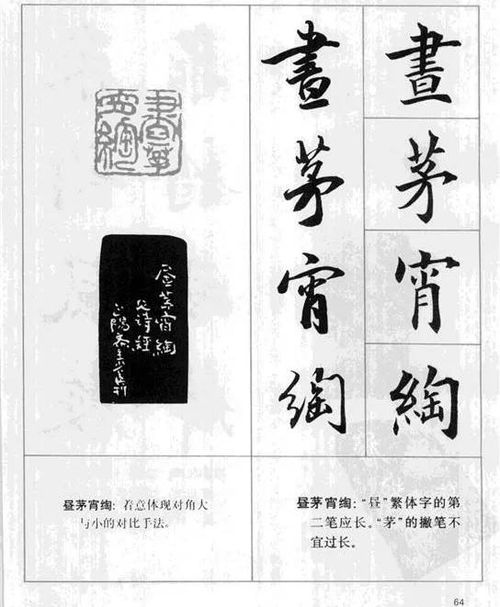 晝茅宵綯
晝茅宵綯
晝茅宵綯
昼茅宵綯
见诗经
昼茅宵绹:着意体现对角大
与小的对比手法。
昼茅宵绹:“昼”繁体字的第
二笔应长。“茅”的撇笔不
宜过长。
64